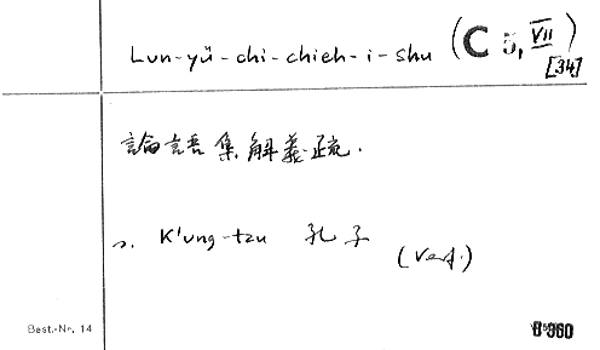 Lun-yü-chi-chieh-i-shu (C 5, VII)
[34]
論語集解義疏.
s. K'ung-tzu 孔子 (Verf.)
Best.-Nr. 14